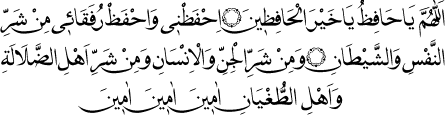 اَللّٰهُمَّ يَا حَافِظُ يَا خَيْرَ الْحَافِظِينَ ۞ اِحْفَظْنِى وَاحْفَظْ رُفَقَائِى مِنْ شَرِّ
النَّفْسِ وَالشَّيْطَانِ ۞ وَمِنْ شَرِّ الْجِنِّ وَالْاِنْسَانِ وَمِنْ شَرِّ اَهْلِ الضَّلَالَةِ
وَاَهْلِ الطُّغْيَانِ اٰمِينَ اٰمِينَ اٰمِينَ